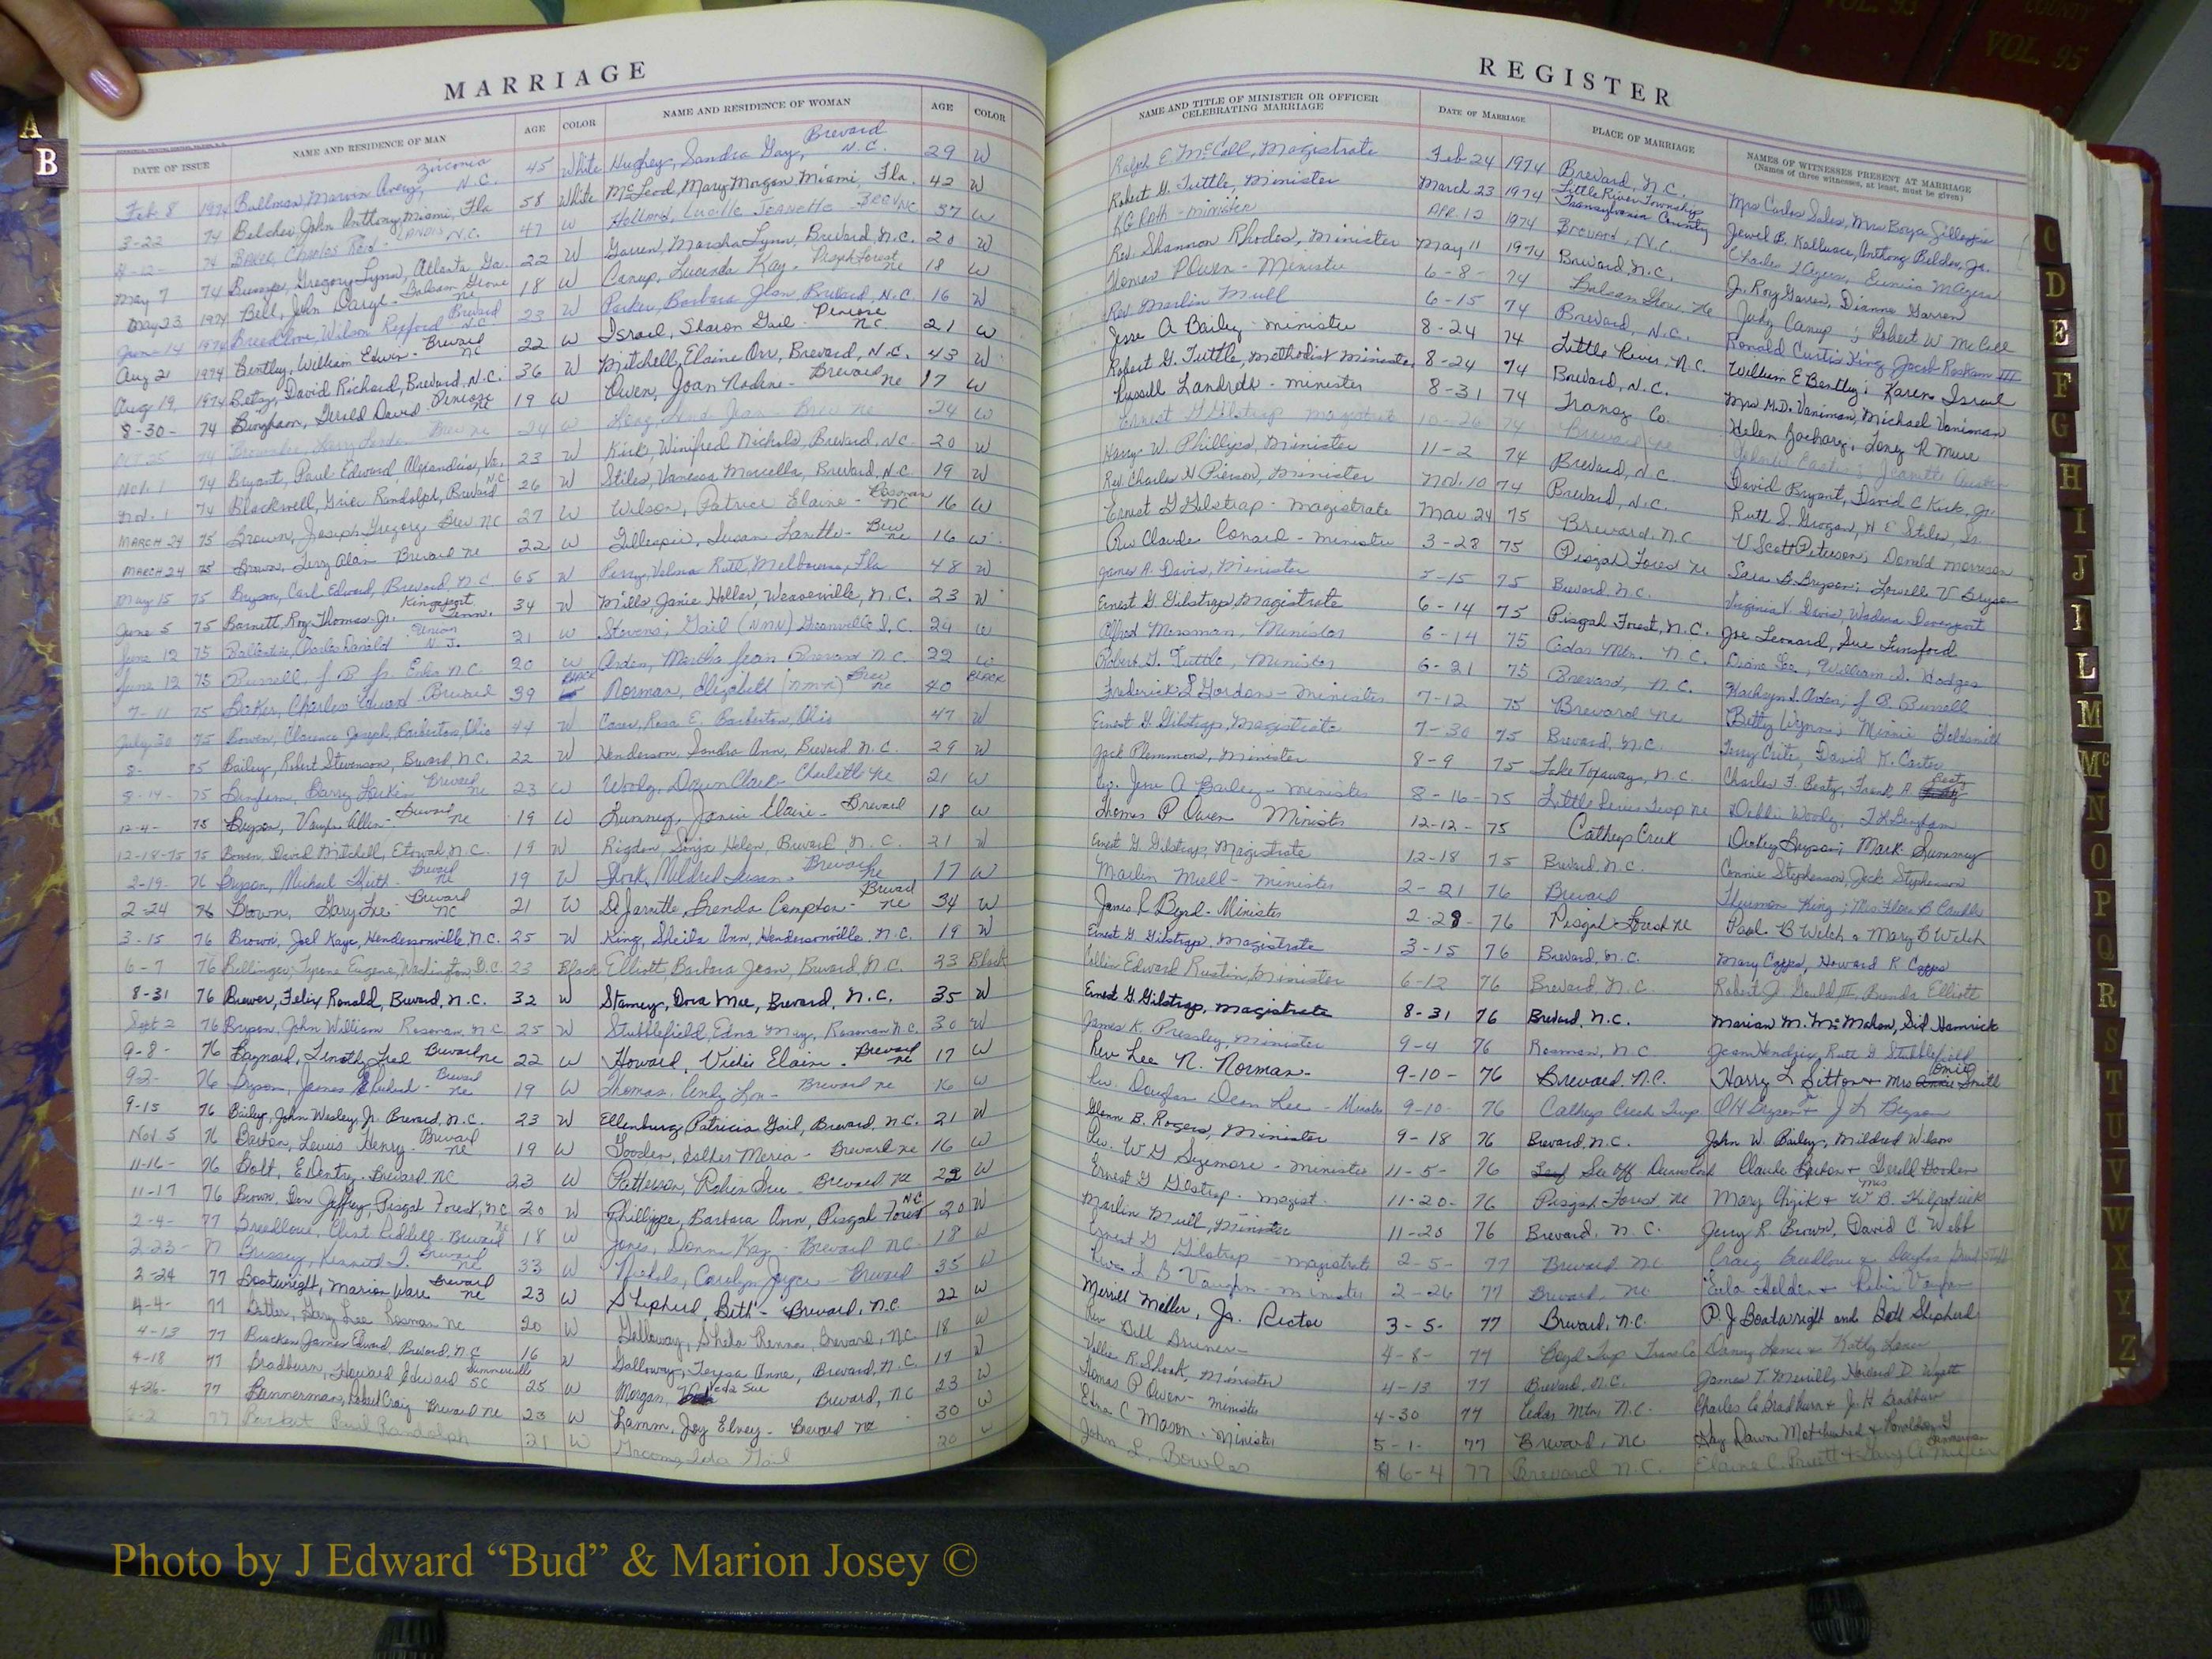 VOL. 93
COUNTY
VOL. 95
MARRIAGE
DATE OF ISSUE NAME AND RESIDENCE OF MAN AGE COLOR NAME AND RESIDENCE OF WOMAN AGE COLOR
Feb 8 1974 Ballman, Marvin Avery, Zirconia N.C. 45 White Hughey, Sandra Gay, Brevard N.C. 29 W
3-22 74 Belcher, John Anthony, Miami, Fla 58 White McLeod, Mary Morgan Miami, Fla. 42 W
74 Baker, Charles - Landis N.C. 47 W Holland, Lucille Jeanette 37 W
May 7 74 Bumps, Gregory Lynn, Atlanta, Ga. 22 W Garren, Marsha Lynn, Brevard, N.C. 20 W
May 23 1974 Bell, John Daryl - Balsam Grove NC 18 W Canup, Lucinda Kay - Pisgah Forest NC 18 W
June 14 1974 Breedlove, Wilson Rexford Brevard N.C. 23 W Parker, Barbara Jean Brevard, N.C. 16 W
Aug 21 1974 Bentley, William Edwin - Brevard NC 22 W Israel, Sharon Gail - Penrose N.C. 21 W
Aug 19 1974 Betaz, David Richard, Brevard, N.C. 36 W Mitchell, Elaine Orr, Brevard, N.C. 43 W
8-30- 74 Bingham, Gerald David - Penrose NC 19 W Owen, Joan Nadine - Brevard NC 17 W
Oct 25 74 24 W 24 W
Nov. 1 74 Bryant, Paul Edward, Alexandria, Va. 23 W Kirk, Winifred Nichols, Brevard, N.C. 20 W
Nov. 1 74 Blackwell, Grier Randolph, Brevard N.C. 26 W Stiles, Vanessa Marcella, Brevard, N.C. 19 W
March 24 75 Brown, Joseph Gregory - Brev NC 27 W Wilson, Patrice Elaine - Rosman NC 16 W
March 24 75 Brown, Jerry Alan Brevard NC 22 W Gillespie, Susan Lanette - Brev NC 16 W
May 15 75 Bryson, Carl Edward, Brevard, N.C. 65 W Perry, Velma Ruth, Melbourne, Fla 48 W
June 5 75 Barnett, Roy Thomas Jr. Kingsport Tenn. 34 W Mills, Janie Hollar, Weaverville, N.C. 23 W
June 12 75 Ballentine, Charles Donald Union N.J. 21 W Stevens, Gail (NMN) Greenville S.C. 24 W
June 12 75 Burrell, J B Jr. N.C. 20 W Arden, Martha Jean Brevard N.C. 22 W
7-11 75 Baker, Charles Edward - Brevard 39 Black Norman, Elizabeth (NMN) Brev NC 40 Black
July 30 75 Bowen, Clarence Joseph, Barberton, Ohio 44 W Carr, Rosa E. Barberton, Ohio 47 W
8- 75 Bailey, Robert Stevenson, Brevard, N.C. 22 W Henderson, Sandra Ann, Brevard, N.C. 29 W
8-14- 75 Bingham, Barry Larkin Brevard NC 23 W Woody, Dawn Claire - Charlotte NC 21 W
12-4- 75 Bryson, Vaughn Allen - Brevard NC 19 W Lunney, Janie Elaine - Brevard 18 W
12-18-75 75 Bowen, David Mitchell, Etowah, N.C. 19 W Rigdon, Sonja Helen, Brevard N.C. 21 W
2-19- 76 Bryson, Michael Keith - Brevard NC 19 W Shook, Mildred Susan - Brevard NC 17 W
2-24 76 Brown, Gary Lee - Brevard NC 21 W DeJarnitte, Brenda Compton - Brevard NC 34 W
3-15 76 Brown, Joel Kaye, Hendersonville, N.C. 25 W King, Sheila Ann, Hendersonville, N.C. 19 W
6-7 76 Bellinger, Tyrone Eugene, Washington, D.C. 23 Black Elliott, Barbara Jean, Brevard, N.C. 33 Black
8-31 76 Brewer, Felix Ronald, Brevard, N.C. 32 W Stamey, Dora Mae, Brevard, N.C. 35 W
Sept 2 76 Bryson, John William Rosman, N.C. 25 W Stubblefield, Edna Mae, Rosman N.C. 30 W
9-8- 76 Baynard, Timothy Fred Brevard NC 22 W Howard, Vickie Elaine - Brevard NC 17 W
9-2- 76 Bryson, James Richard - Brevard NC 19 W Thomas, Cindy Lou - Brevard NC 16 W
9-15 76 Bailey, John Wesley, Jr. Brevard, N.C. 23 W Ellenburg, Patricia Gail, Brevard, N.C. 21 W
Nov. 5 76 Barton, Lewis Henry - Brevard NC 19 W Gooden, Esther Maria - Brevard NC 16 W
11-16- 76 Bolt, E Dentry - Brevard NC 23 W Patterson, Robin Sue - Brevard NC 22 W
11-17 76 Brown, Don Jeffrey, Pisgah Forest, N.C. 20 W Phillippe, Barbara Ann, Pisgah Forest NC 20 W
2-4- 77 Breedlove, Clint Riddell - Brevard NC 18 W Jones, Donna Kay - Brevard NC 18 W
2-23- 77 Brissey, Kenneth I. Brevard NC 33 W Nichols, Carolyn Joyce - Brevard 35 W
2-24 77 Boatwright, Marion Ware Brevard NC 23 W Shepherd, Beth - Brevard, N.C. 22 W
4-4- 77 Gary Lee Rosman NC 20 W Galloway, Shela Renna, Brevard, N.C. 18 W
4-13 77 Bracken, James Edward, Brevard, N.C. 16 W Galloway, Teresa Anne, Brevard, N.C. 17 W
4-18 77 Bradburn, Howard Edward Summerville SC 25 W Morgan, Veda Sue Brevard, N.C. 23 W
4-26- 77 Bannerman, Robert Craig Brevard NC 23 W Lamm, Joy Elvey - Brevard NC 30 W
77 Paul Randolph 21 W Ida Gail 20 W
REGISTER
NAME AND TITLE OF MINISTER OR OFFICER CELEBRATING MARRIAGE DATE OF MARRIAGE PLACE OF MARRIAGE NAMES OF WITNESSES PRESENT AT MARRIAGE
(Names of three witnesses, at least, must be given)
Ralph E. McCall, Magistrate Feb 24 1974 Brevard, N.C. Mrs Carlos Sales, Mrs Boyce Gillespie
Robert G. Tuttle, Minister March 23 1974 Little River Township Transylvania County Jewel B. Kallusce, Anthony Belcher, Jr.
K G Roth - minister Apr. 12 1974 Brevard, N.C. Charles Eunice M Ayers
Rev. Shannon Rhodes, Minister May 11 1974 Brevard, N.C. J. Roy Garren, Dianne Garren
Thomas P Owen - Minister 6-8- 74 Balsam Grove NC Judy Canup ; Robert W McCall
Rev Marlin Mull 6-15 74 Brevard, N.C. Ronald Curtis King, Jacob Raskam III
Jesse A Bailey - minister 8-24 74 Little River, N.C. William E Bentley ; Karen Israel
Robert G. Tuttle, Methodist Minister 8-24 74 Brevard, N.C. Mrs M.D. Vaniman, Michael Vaniman
Russell Landreth - minister 8-31 74 Transy Co. Helen Zachary ;
Ernest G Gilstrap magistrate 10-26 74 Brevard NC
Harry W. Phillips, Minister 11-2 74 Brevard, N.C. David Bryant, David C Kirk, Jr.
Rev. Charles N Pierson, Minister Nov. 10 74 Brevard, N.C. Ruth S. Grogan, H E Stiles, Sr.
Ernest G Gilstrap - magistrate Mar. 24 75 Brevard, N.C V Scott Peterson, Donald Morrison
Rev Claude Conard - minister 3-28 75 Pisgah Forest NC Sara B Bryson ; Lowell V Bryson
James A. Davis, Minister 5-15 75 Brevard N.C. Virginia V. Davis, Wadena Davenport
Ernest G. Gilstrap, Magistrate 6-14 75 Pisgah Forest, N.C. Joe Leonard, Sue Lunsford
Alfred Mossman, Minister 6-14 75 Cedar Mtn. N.C. William D. Hodges
Robert G. Tuttle, Minister 6-21 75 Brevard, N.C. Kathryn S. Arden, J. B. Burrell
Frederick L Gordon - minister 7-12 75 Brevard NC Betty Wynn ; Minnie Goldsmith
Ernest G. Gilstrap, Magistrate 7-30 75 Brevard, N.C. Terry Crite, David K. Carter
Jack Plemmons, Minister 8-9 75 Lake Toxaway, N.C. Charles F. Beaty, Frank A. Beaty
Rev. Jesse A Bailey - Minister 8-16-75 Little River Twp NC Debbi Woody,
Thomas P Owen Minister 12-12- 75 Catheys Creek Dickey Bryson ; Mark
Ernest G. Gilstrap, Magistrate 12-18 75 Brevard N.C. Connie Stephenson, Jack Stephenson
Marlin Mull - minister 2-21 76 Brevard Thurman King ; Mrs
James R Byrd - Minister 2-28- 76 Pisgah Forest NC Paul B Welch & Mary B Welch
Ernest G Gilstrap, Magistrate 3-15 76 Brevard, N.C. Mary Capps, Howard R Capps
Collin Edward Rustin, Minister 6-12 76 Brevard, N.C. Robert J. Gould III, Brenda Elliott
Ernest G. Gilstrap, Magistrate 8-31 76 Brevard, N.C. Marian M. McMahan, Sid Hamrick
James K. Pressley, Minister 9-4 76 Rosman, N.C. Jean Hendrix, Ruth G Stubblefield
Rev Lee N. Norman - 9-10- 76 Brevard, N.C. Harry L Sitton & Mrs Omie Smith
Rev. Douglas Dean Lee - Minister 9-10- 76 Catheys Creek Twp O H Bryson Jr & J L Bryson
Glenn B. Rogers, Minister 9-18 76 Brevard, N.C. John W. Bailey, Mildred Wilson
Rev. W G Sizemore - minister 11-5- 76 See Off Claude Barton & Gerell Gooden
Ernest G Gilstrap - magist. 11-20- 76 Pisgah Forest NC Mary Chzik & Mrs W B. Kilpatrick
Marlin Mull, Minister 11-20 76 Brevard, N.C. Jerry R. Brown, David C. Webb
Ernest G Gilstrap - magistrate 2-5- 77 Brevard NC Craig Breedlove &
Rev L B Vaughn - minister 2-26 77 Brevard, NC Holden & Robin Vaughn
Merrill Miller, Jr. Rector 3-5- 77 Brevard, N.C. P. J Boatwright and Bill Shepherd
Rev Bill Bruner - 4-8- 77 Boyd Twp Trans Co Danny Lance & Kathy Lance
Vollie R. Shook, Minister 4-13 77 Brevard, N.C. James T. Merrill, Howard D. Wyatt
Thomas P Owen - minister 4-30 77 Cedar Mtn, N.C. Charles C Bradburn & J. H Bradburn
Edna C Mason - Minister 5-1- 77 Brevard, NC Kay Dawn Motsinger & Ronald G
John L. Bowles 6-4 77 Brevard N.C. Elaine C. Pruett & Gary A.
A
B
C
D
E
F
G
H
I
J
L
M
Mc
N
O
P
Q
R
S
T
U
V
W
X
Y
Z
Photo by J Edward “Bud” & Marion Josey ©